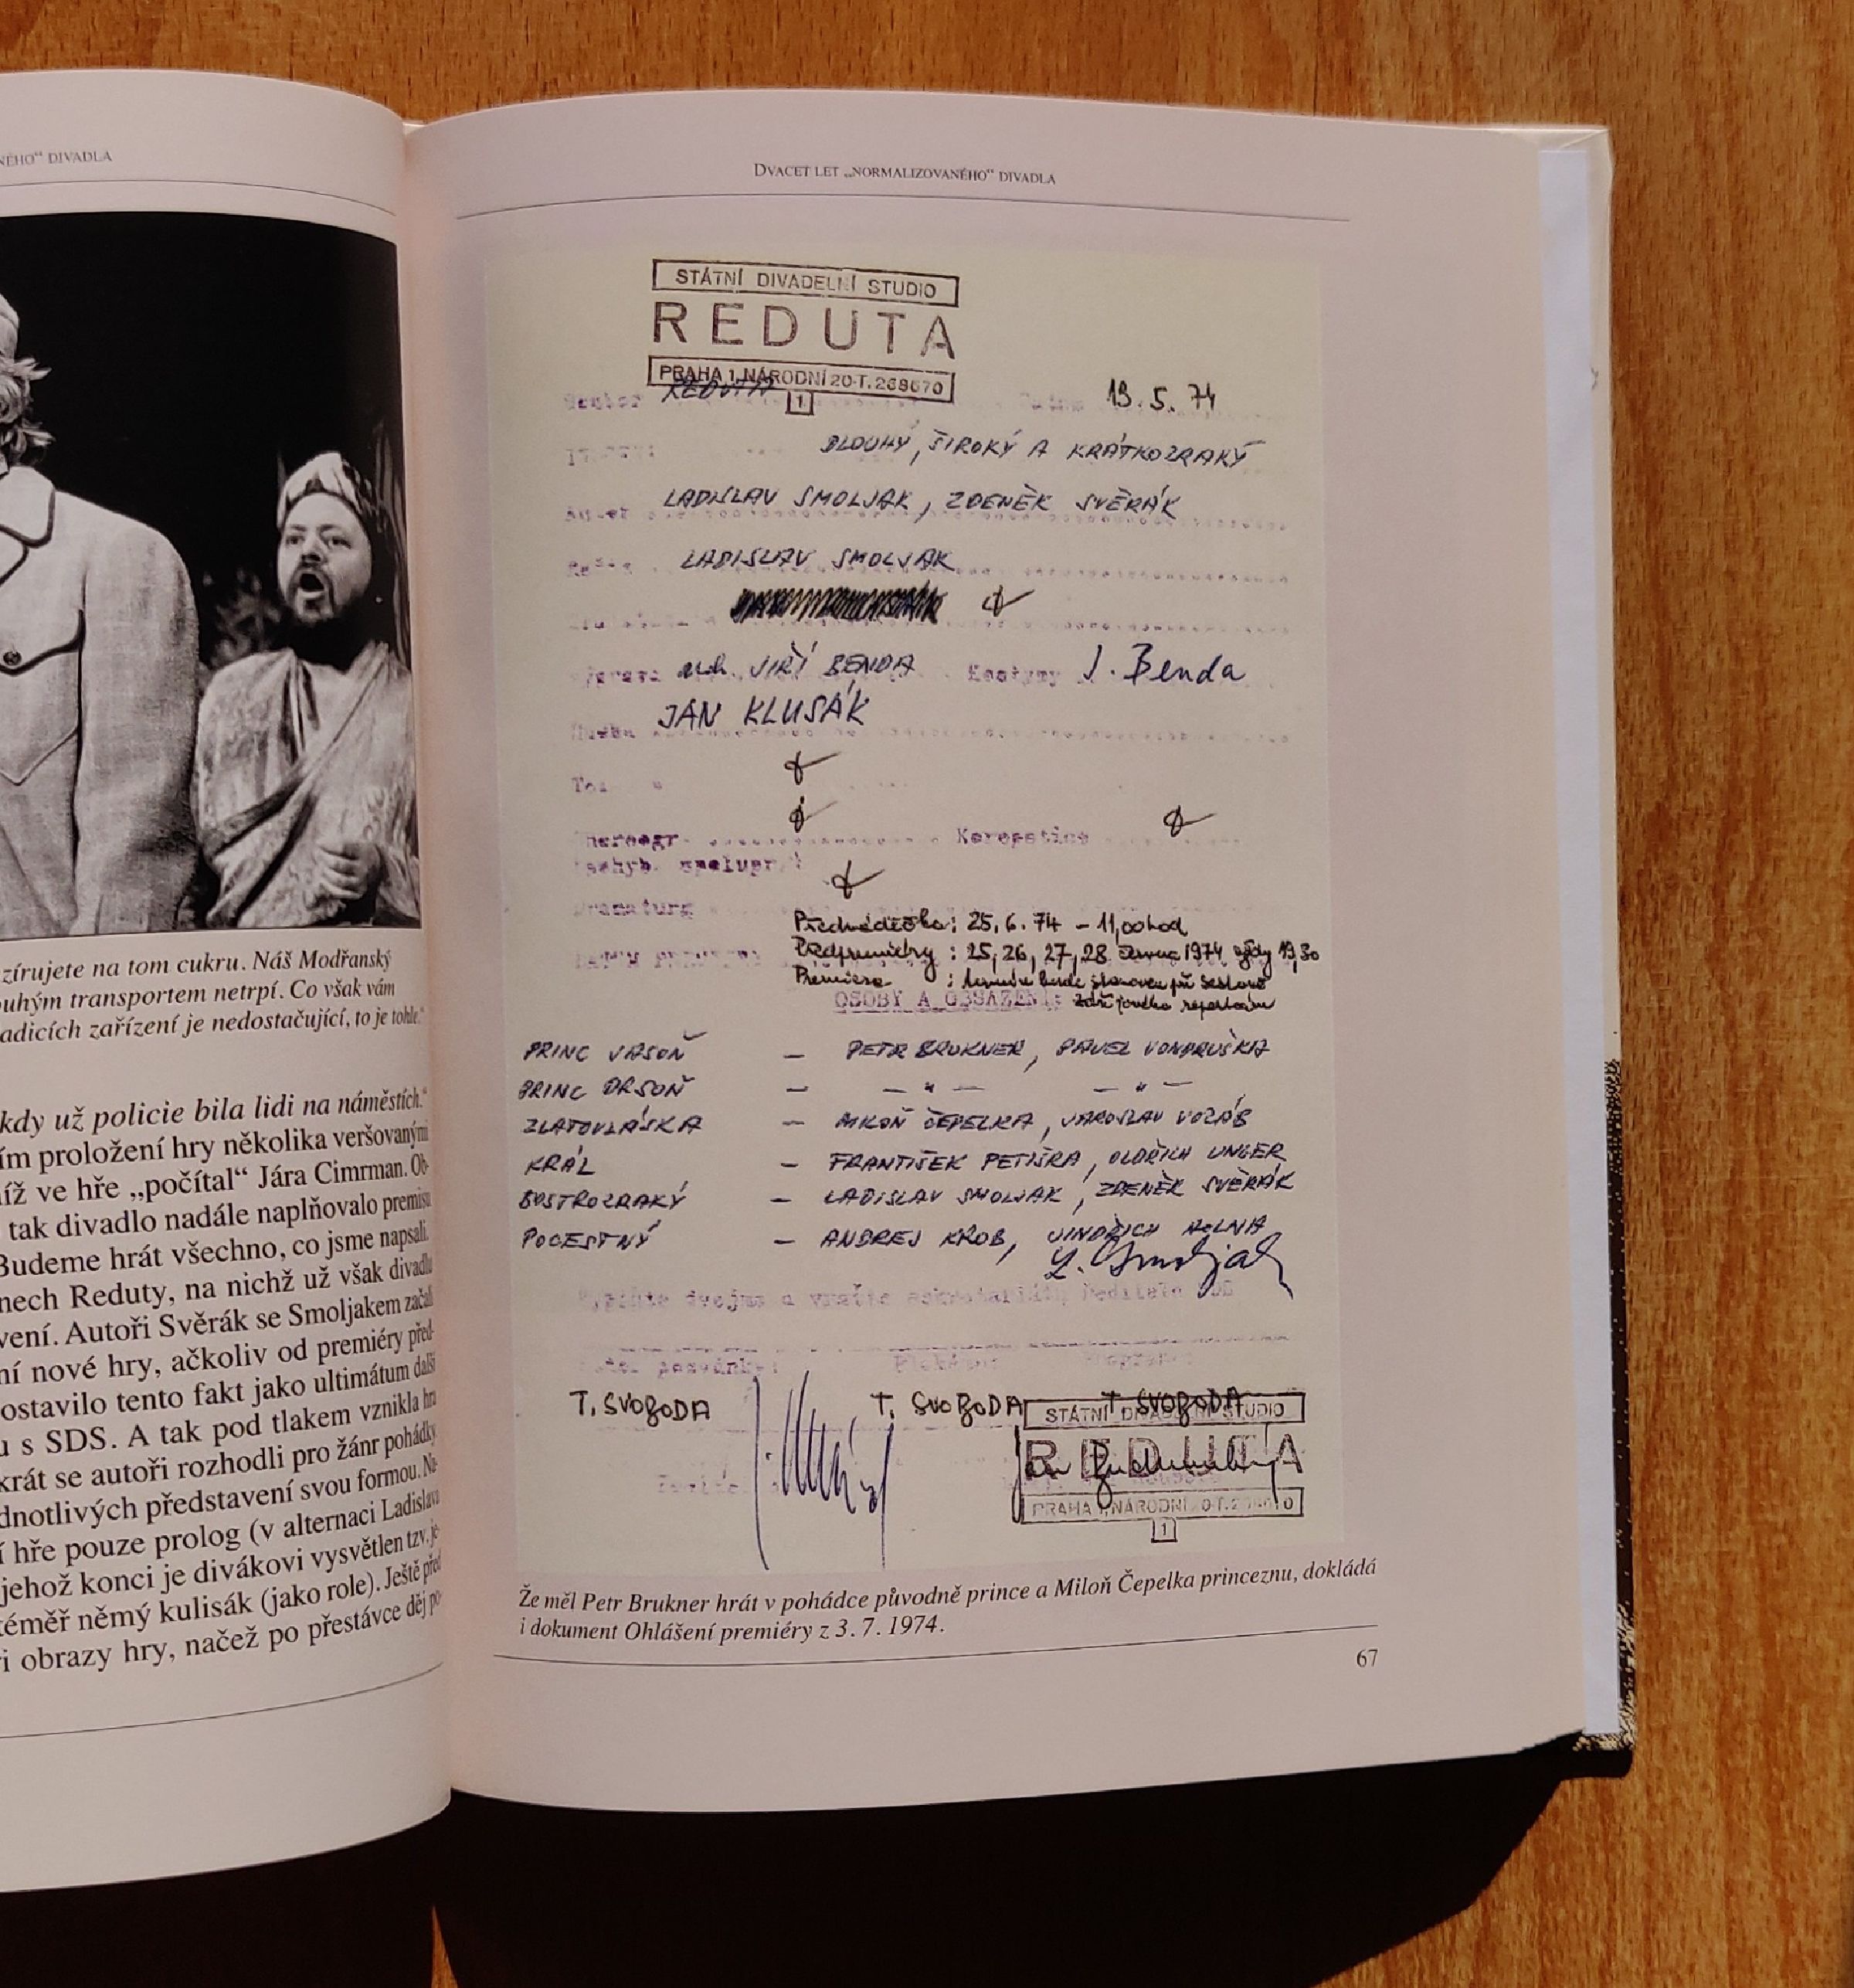 NÉHO“ DIVADLA
zírujete na tom cukru. Náš Modřanský
ouhým transportem netrpí. Co však vám
adicích zařízení je nedostačující, to je tohle.“
kdy už policie bila lidi na náměstích.“
ím proložení hry několika veršovanými
íž ve hře „počítal“ Jára Cimrman. Ob-
tak divadlo nadále naplňovalo premisu
Budeme hrát všechno, co jsme napsali.
nech Reduty, na nichž už však divadlu
vení. Autoři Svěrák se Smoljakem začali
ní nové hry, ačkoliv od premiéry před-
ostavilo tento fakt jako ultimátum další
u s SDS. A tak pod tlakem vznikla hra
krát se autoři rozhodli pro žánr pohádky
dnotlivých představení svou formou. Na-
í hře pouze prolog (v alternaci Ladislava
jehož konci je divákovi vysvětlen tzv. je-
téměř němý kulisák (jako role). Ještě před
i obrazy hry, načež po přestávce děj po-
DVACET LET „NORMALIZOVANÉHO“ DIVADLA
STÁTNÍ DIVADELNÍ STUDIO
REDUTA
PRAHA 1, NÁRODNÍ 20-T. 268670
1
REDUTA 13. 5. 74
DLOUHÝ, ŠIROKÝ A KRÁTKOZRAKÝ
Autor LADISLAV SMOLJAK, ZDENĚK SVĚRÁK
LADISLAV SMOLJAK
JIŘÍ BENDA Kostymy J. Benda
Hudba JAN KLUSÁK
Choreogr. Korepetice
pohyb. spolupr.
Dramaturg
Předváděčka: 25. 6. 74 – 11,00 hod
Předpremiéry: 25, 26, 27, 28 června 1974 vždy 19,30
Premiéra : termín bude stanoven při sestavě
OSOBY A OBSAZENÍ: repertoáru
PRINC JASOŇ – PETR BRUKNER, PAVEL VONDRUŠKA
PRINC DRSOŇ – – " – – " –
ZLATOVLÁSKA – MILOŇ ČEPELKA, JAROSLAV VOZÁB
KRÁL – FRANTIŠEK PETIŠKA, OLDŘICH UNGER
BYSTROZRAKÝ – LADISLAV SMOLJAK, ZDENĚK SVĚRÁK
POCESTNÝ – ANDREJ KROB, JINDŘICH
L. Smoljak
Vyplňte dvojmo a vraťte sekretariátu ředitele SDS
T. SVOBODA T. SVOBODA T. SVOBODA
STÁTNÍ DIVADELNÍ STUDIO
REDUTA
PRAHA 1, NÁRODNÍ 20-T. 268670
1
Že měl Petr Brukner hrát v pohádce původně prince a Miloň Čepelka princeznu, dokládá
i dokument Ohlášení premiéry z 3. 7. 1974.
67